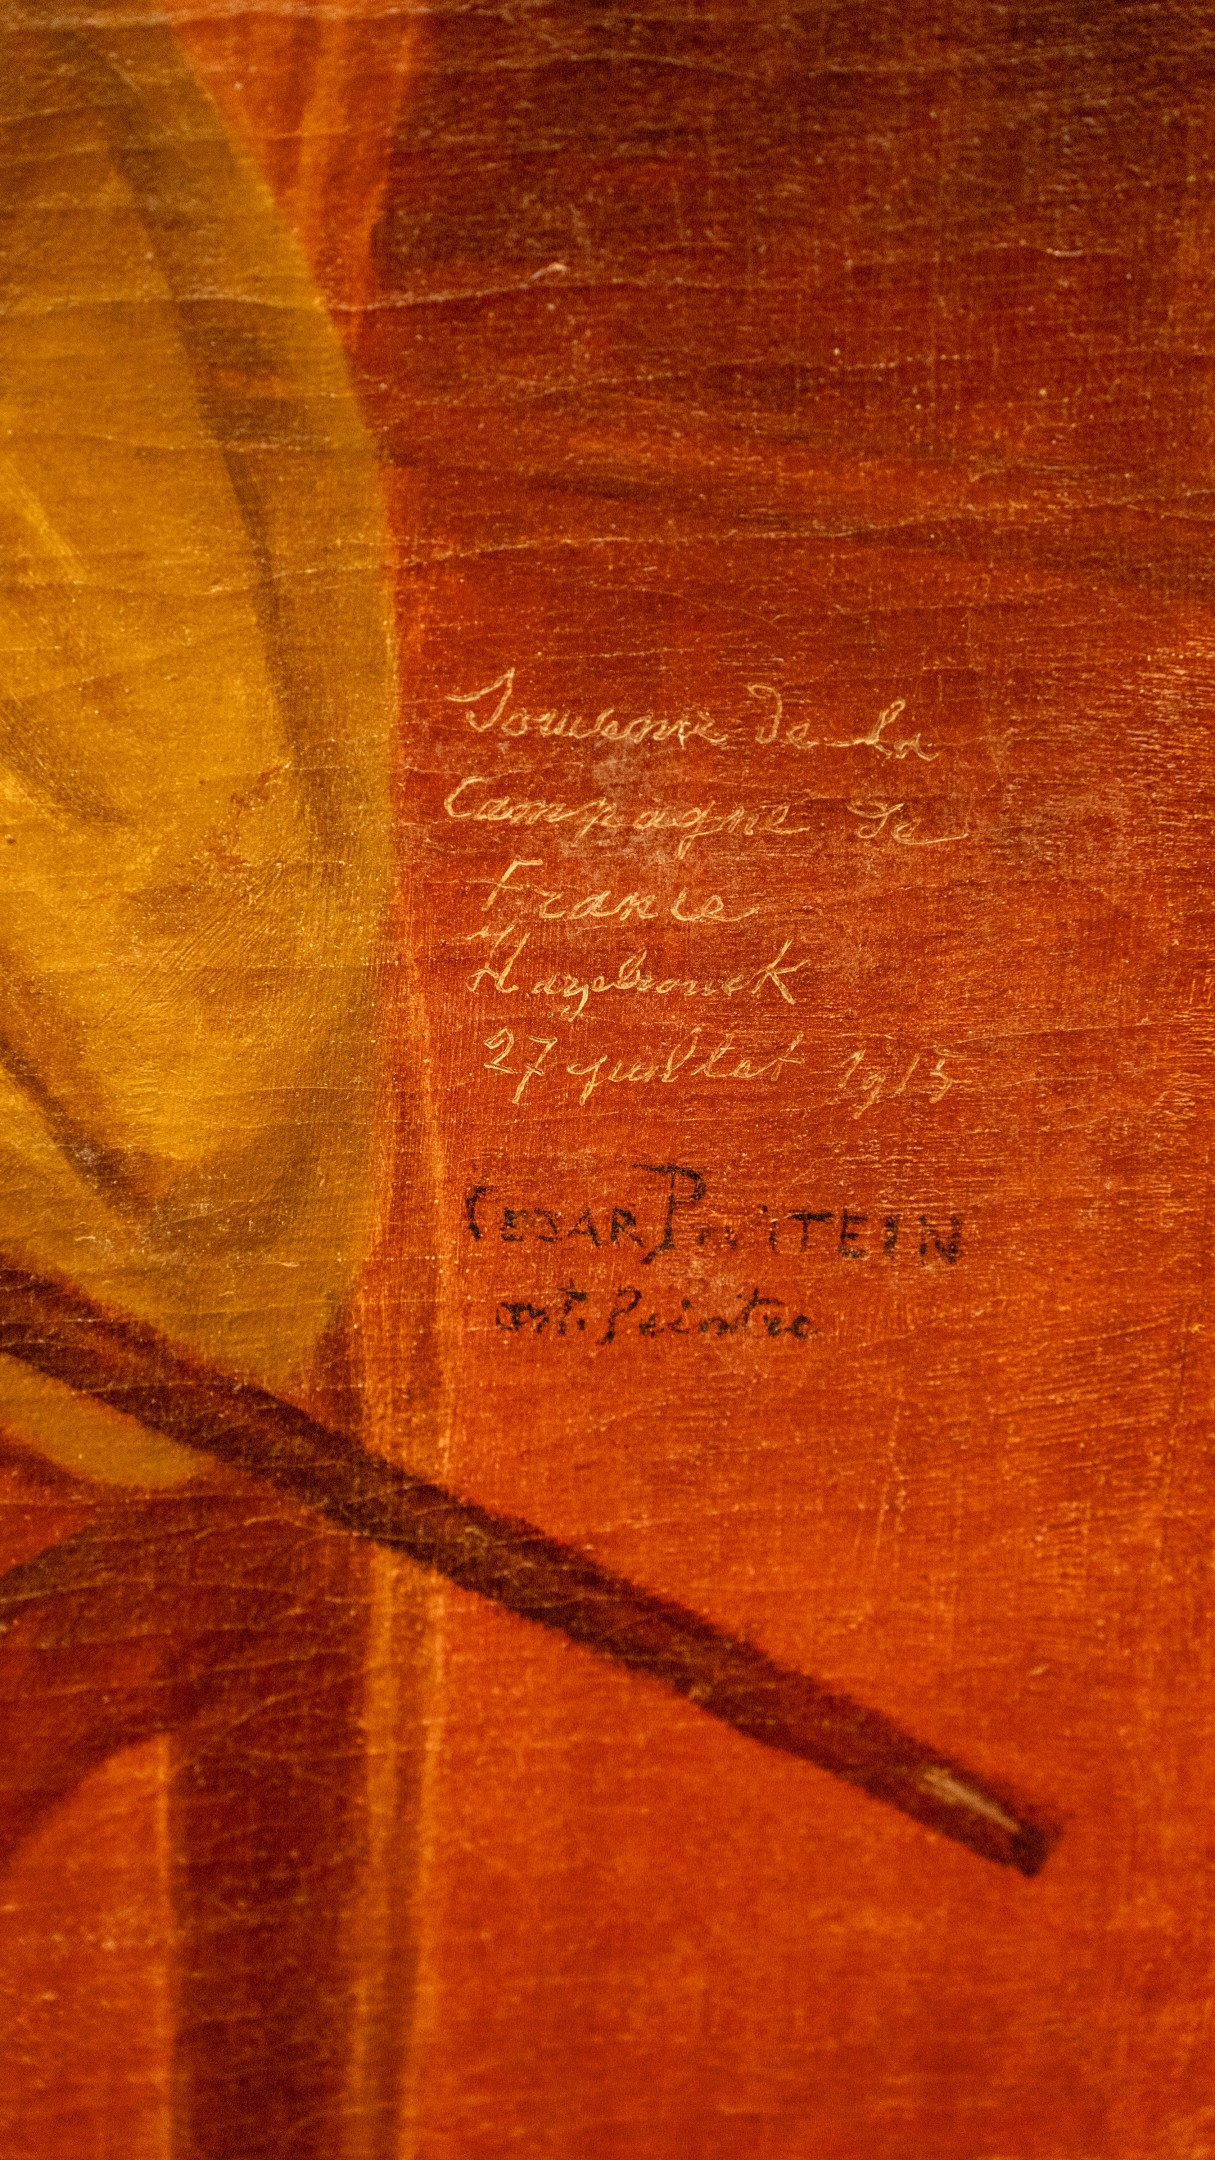 Souvenir de la
Campagne de
France
Hazebrouck
27 juillet 1915
CESAR
art. Peintre